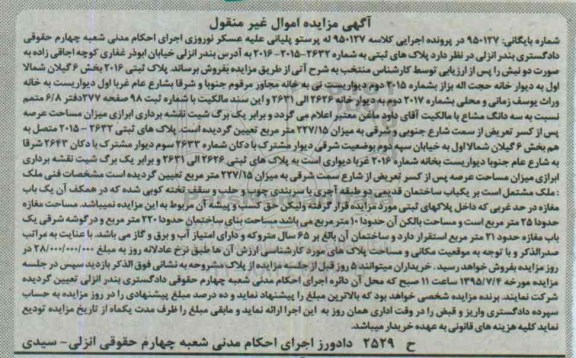 آگهی مزایده اموال غیر منقول
شماره بایگانی: ۹۵۰۱۲۷ در پرونده اجرایی کلاسه ۹۵۰۱۲۷ له پرستو پلیانی علیه عسکر نوروزی اجرای احکام مدنی شعبه چهارم حقوقی
دادگستری بندر انزلی در نظر دارد پلاک های ثبتی به شماره ۲۶۳۲-۲۰۱۵-۲۰۱۶ به آدرس بندر انزلی خیابان ابوذر غفاری کوچه اجاقی زاده به
صورت دو نبش را پس از ارزیابی توسط کارشناس منتخب به شرح آتی از طریق مزایده بفروش برساند. پلاک ثبتی ۲۰۱۶ بخش ۶ گیلان شمالا
اول به دیوار خانه حجت اله بزاز بشماره ۲۰۱۵ دوم دیواریست نی به خانه مجاور مرقوم جنوبا و شرقا بشارع عام غربا اول دیواریست به خانه
وراث یوسف زمانی و محلی بشماره ۲۰۱۷ دوم به دیوار خانه ۲۶۲۶ الی ۲۶۳۱ و این سند مالکیت با شماره ثبت ۹۸ صفحه ۳۷۷ دفتر ۶/۸ متمم
نسبت به سه دانگ مشاع با مالکیت آقای داود مافی معتبر اعلام می گردد و برابر یک برگ شیت نقشه برداری ابرازی میزان مساحت عرصه
پس از کسر تعریض از سمت شارع جنوبی و شرقی به میزان ۲۲۷/۱۵ متر مربع تعیین گردیده است. پلاک های ثبتی ۲۶۳۲ – ۲۰۱۵ متصل به
هم بخش ۶ گیلان شمالا اول به خیابان سپه دوم بوضعیت شرقی دیوار مشترک با دکان شماره ۲۶۳۳ سوم دیوار مشترک با دکان ۲۶۴۳ شرقا
به شارع عام جنوبا دیواریست بخانه شماره ۲۰۱۶ غربا دیواری است به پلاک های ثبتی ۲۶۲۶ الی ۲۶۳۱ و برابر یک برگ شیت نقشه برداری
ابرازی میزان مساحت عرصه پس از کسر تعریض از شارع سمت شرقی به میزان ۲۲۷/۱۵ متر مربع تعیین گردیده است مشخصات فنی ملک
: ملک مشتمل است بر یکباب ساختمان قدیمی دو طبقه آجری با سربندی چوب و حلب و سقف تخته کوبی شده که در همکف آن یک باب
مغازه در حد غربی که داخل پلاکهای ثبتی مورد مزایده قرار گرفته ولیکن حق کسب و پیشه آن مربوط به این مزایده نمیباشد. مساحت مغازه
حدودا ۲۵ متر مربع است و مساحت بالکن آن حدودا ۱۰ متر مربع می باشد. مساحت بنای ساختمان حدودا ۲۲۰ متر مربع و در گوشه شرقی یک
باب مغازه حدود ۲۱ متر مربع استقرار دارد و ساختمان آن بالغ بر ۶۵ سال متروکه و دارای امتیاز آب و برق و گاز می باشد. با عنایت به مراتب
صدرالذکر و با توجه به موقعیت مکانی و مساحت پلاک های مورد کارشناسی ارزش آن ها طبق نرخ عادلانه روز به مبلغ ۲۸/۰۰۰/۰۰۰/۰۰۰ در
روز مزایده بفروش خواهد رسید. خریداران میتوانند ۵ روز قبل از جلسه مزایده از پلاک مشروحه به نشانی فوق الذکر بازدید سپس در جلسه
مزایده مورخه ۱۳۹۵/۷/۴ ساعت ۱۱ صبح که محل آن دائره اجرای احکام مدنی شعبه چهارم حقوقی دادگستری بندر انزلی تعیین گردیده
شرکت نمایند. برنده مزایده شخصی خواهد بود که بالاترین مبلغ را پیشنهاد نماید و ده درصد مبلغ پیشنهادی را در روز مزایده به حساب
سپرده دادگستری واریز و قبض را در وقت اداری همان روز به این اجرا ارائه نماید و مابقی مبلغ را ظرف مدت یکماه از تاریخ مزایده تودیع
نماید کلیه هزینه های قانونی به عهده خریدار میباشد.
ح ۲۵۲۹ دادورز اجرای احکام مدنی شعبه چهارم حقوقی انزلی – سیدی